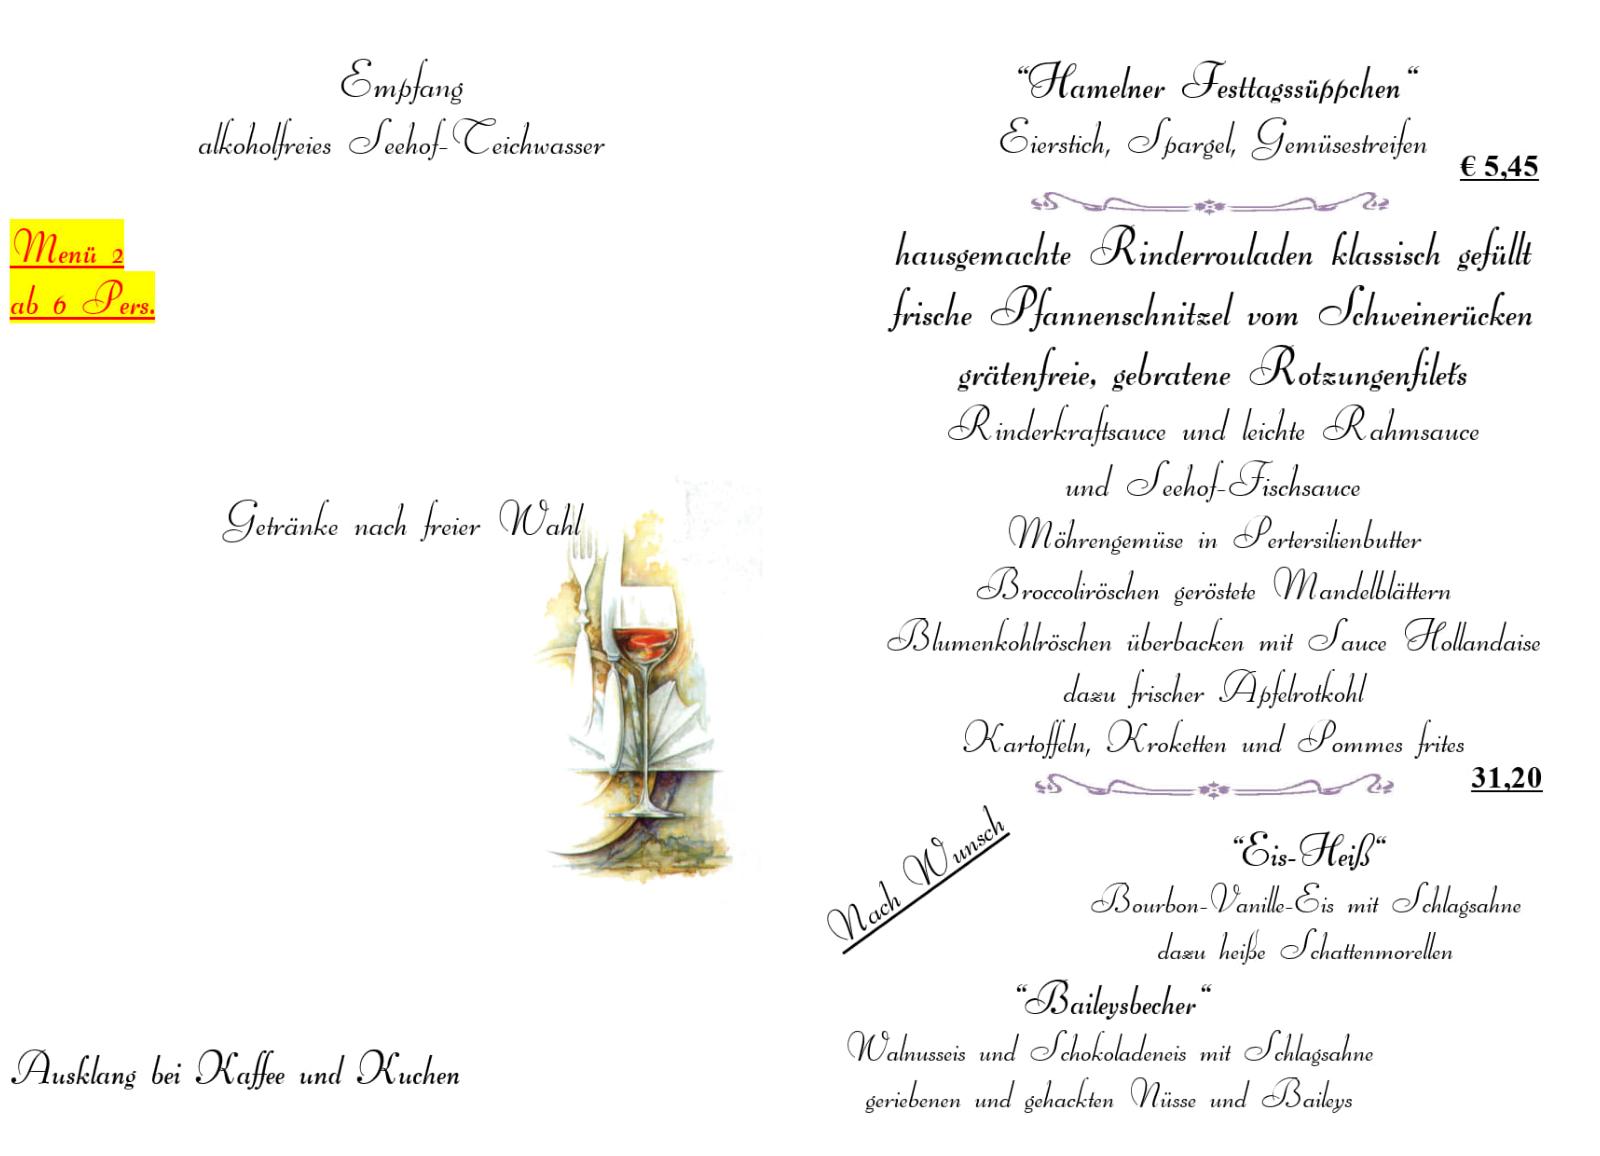 Empfang
alkoholfreies Seehof-Teichwasser
Menü 2
ab 6 Pers.
Getränke nach freier Wahl
Ausklang bei Kaffee und Kuchen
“Hamelner Festtagssüppchen“
Eierstich, Spargel, Gemüsestreifen
€ 5,45
hausgemachte Rinderrouladen klassisch gefüllt
frische Pfannenschnitzel vom Schweinerücken
grätenfreie, gebratene Rotzungenfilet's
Rinderkraftsauce und leichte Rahmsauce
und Seehof-Fischsauce
Möhrengemüse in Pertersilienbutter
Broccoliröschen geröstete Mandelblättern
Blumenkohlröschen überbacken mit Sauce Hollandaise
dazu frischer Apfelrotkohl
Kartoffeln, Kroketten und Pommes frites
31,20
Nach Wunsch
“Eis-Heiß“
Bourbon-Vanille-Eis mit Schlagsahne
dazu heiße Schattenmorellen
“Baileysbecher“
Walnusseis und Schokoladeneis mit Schlagsahne
geriebenen und gehackten Nüsse und Baileys